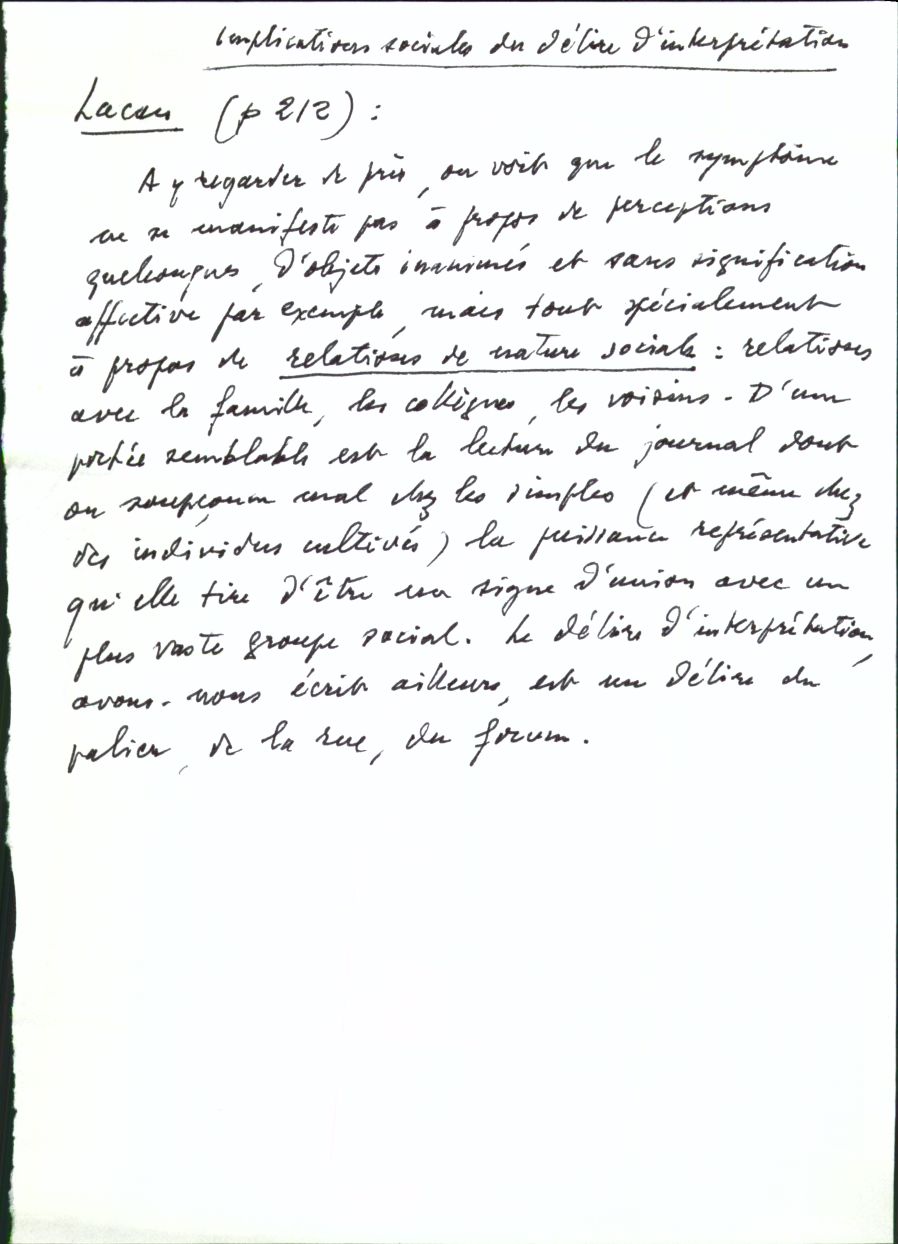 Implications sociales du délire d'interprétation
Lacan (p 212) :
A y regarder de près, on voit que le symptôme
ne se manifeste pas à propos de perceptions
quelconques, d'objets inanimés et sans signification
affective par exemple, mais tout spécialement
à propos de relations de nature sociale : relations
avec la famille, les collègues, les voisins. D'une
portée semblable est la lecture du journal dont
on soupçonne mal chez les simples (et même chez
des individus cultivés) la puissance représentative
qu'elle tire d'être un signe d'union avec un
plus vaste groupe social. Le délire d'interprétation,
avons-nous écrit ailleurs, est un délire du
palier, de la rue, du forum.